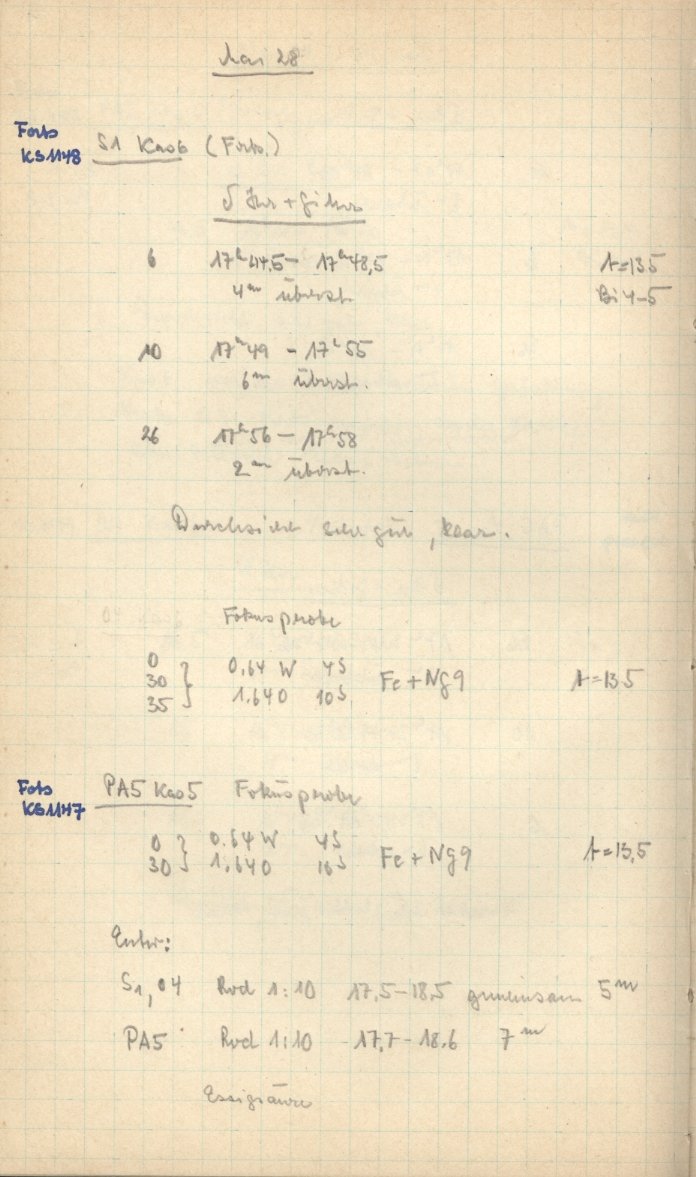 Mai 28
Forts
KS1148
S1 Kas6 (Forts.)
6 17ʰ44,5 – 17ʰ48,5 t=13.5
4ᵐ überst. Bi 4-5
10 17ʰ49 – 17ʰ55
6ᵐ überst.
26 17ʰ56 – 17ʰ58
2ᵐ überst.
Durchsicht sehr gut, klar.
Fokusprobe
0
30 0,64 W 4S Fe + Ng9 t=13.5
35 1.640 10S
Forts
KS1147
PA5 Kas5 Fokusprobe
0 0.64 W 4S
30 1,640 Fe + Ng9 t=13,5
Entw:
S1, 04 Rod 1:10 17,5–18,5 gemeinsam 5ᵐ
PA5 Rod 1:10 17,7–18,6 7ᵐ
Essigsäure